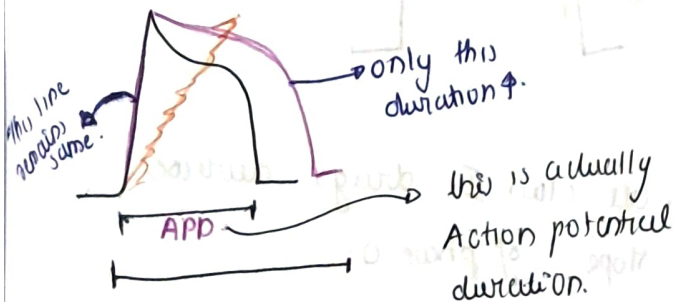 This line
remains
same.
only this
duration↑.
APD
this is actually
Action potential
duration.